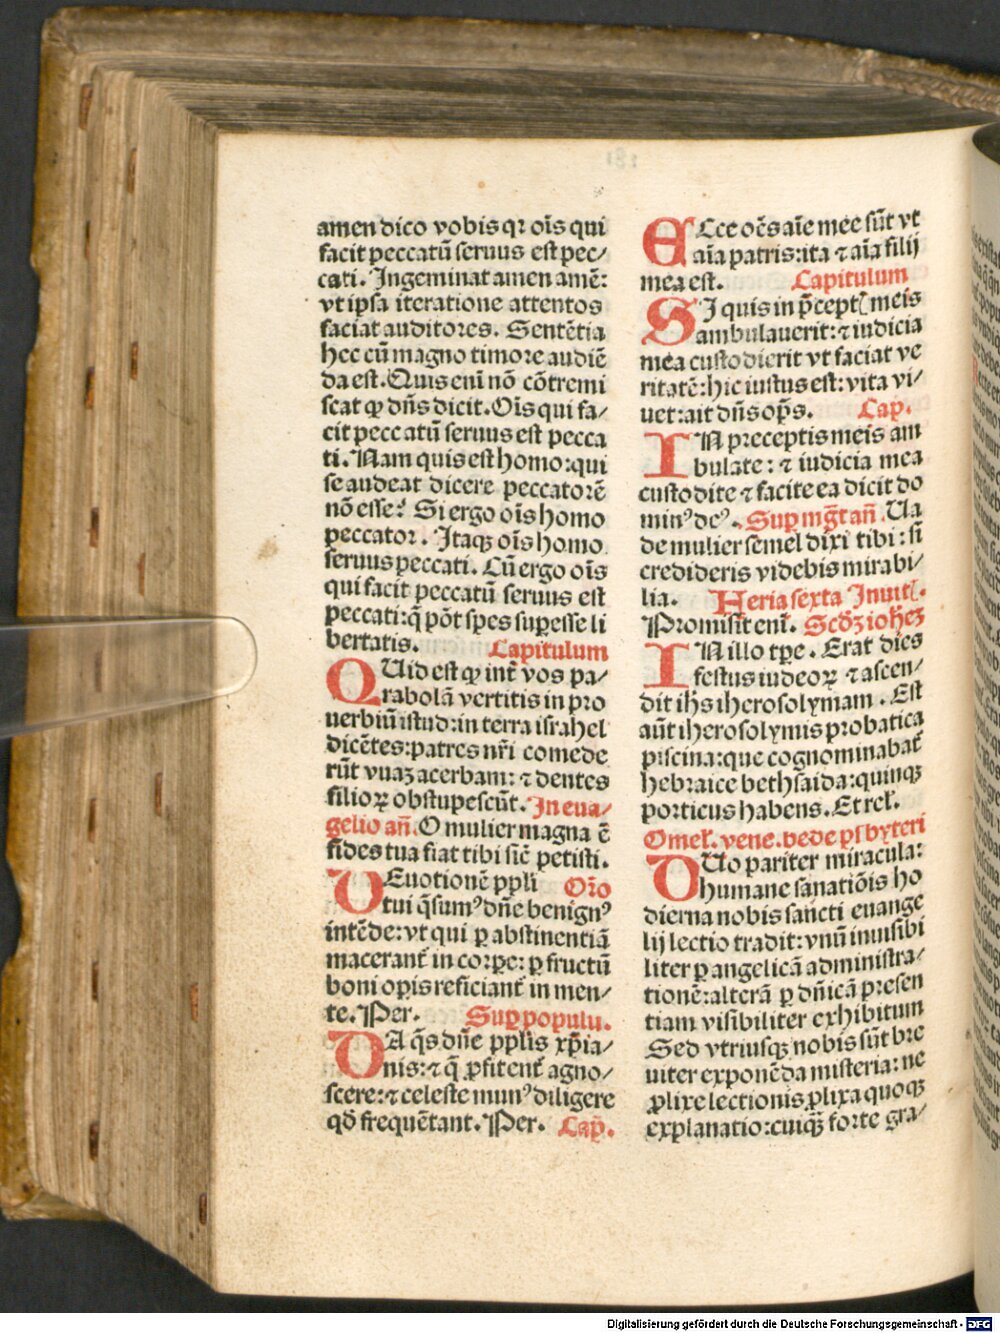 amen dico vobis qꝛ oīs qui
facit peccatū ſeruus eſt pec⸗
cati. Ingeminat amen amē:
vt ipſa iteratione attentos
faciat auditores. Sentētia
hec cū magno timore audiē
da eſt. Quis enī nō cōtremi
ſcat ꝙ dn̄s dicit. Oīs qui fa⸗
cit peccatū ſeruus eſt pecca
ti. Nam quis eſt homo: qui
ſe audeat dicere peccatorē
nō eſſe? Si ergo oīs homo
peccator. Itaqꝫ oīs homo
ſeruus peccati. Cū ergo oīs
qui facit peccatū ſeruus eſt
peccati: q̄ pōt ſpes ſuꝑeſſe li
bertatis. Capitulum
QUid eſt ꝙ int̄ vos pa⸗
rabolā vertitis in pro
uerbiū iſtud: in terra iſrahel
dicētes: patres nr̄i comede
rūt vuaꝫ acerbam: ⁊ dentes
filioꝝ obſtupeſcūt. In eua⸗
gelio an̄. O mulier magna ē
fides tua fiat tibi ſic̄ petiſti.
DEuotionē ppli Or̄o
tui q̄ſumꝰ dn̄e benignꝰ
intēde: vt qui ꝑ abſtinentiā
macerant̄ in corꝑe: ꝑ fructū
boni oꝑis reficiant̄ in men⸗
te. Per. Suꝑ populu.
DA q̄s dn̄e pplis xp̄ia⸗
nis: ⁊ q̄ ꝓfitent̄ agno⸗
ſcere: ⁊ celeſte munꝰ diligere
qď frequētant. Per. Cap̄.
ECce oēs aīe mee ſūt vt
aīa patris: ita ⁊ aīa filij
mea eſt. Capitulum
SI quis in p̄ceptꝭ meis
ambulauerit: ⁊ iudicia
mea cuſtodierit vt faciat ve
ritatē: hic iuſtus eſt: vita vi⸗
uet: ait dn̄s op̄s. Cap̄.
IN preceptis meis am
bulate: ⁊ iudicia mea
cuſtodite ⁊ facite ea dicit do
minꝰ deꝰ. Suꝑ mḡt an̄. Ua
de mulier ſemel dixi tibi: ſi
credideris videbis mirabi⸗
lia. Feria ſexta Inuitꝭ.
Promiſit enī. Scďꝫ ioh̄eꝫ
IN illo tꝑe. Erat dies
feſtus iudeoꝝ ⁊ aſcen⸗
dit ih̄s iheroſolymam. Eſt
aūt iheroſolymis probatica
piſcina: que cognominabat̄
hebraice bethſaida: quinqꝫ
porticus habens. Et rel̄.
Omel̄. vene. bede pſbyteri
DUo pariter miracula:
humane ſanatiōis ho
dierna nobis ſancti euange
lij lectio tradit: vnū inuiſibi
liter ꝑ angelicā adminiſtra⸗
tionē: alterā ꝑ dn̄icā preſen
tiam viſibiliter exhibitum
Sed vtriuſqꝫ nobis ſūt bre
uiter exponēda miſteria: ne
ꝓlixe lectionis ꝓlixa quoqꝫ
explanatio: cuiq̄ꝫ forte gra⸗
Digitalisierung gefördert durch die Deutsche Forschungsgemeinschaft - DFG